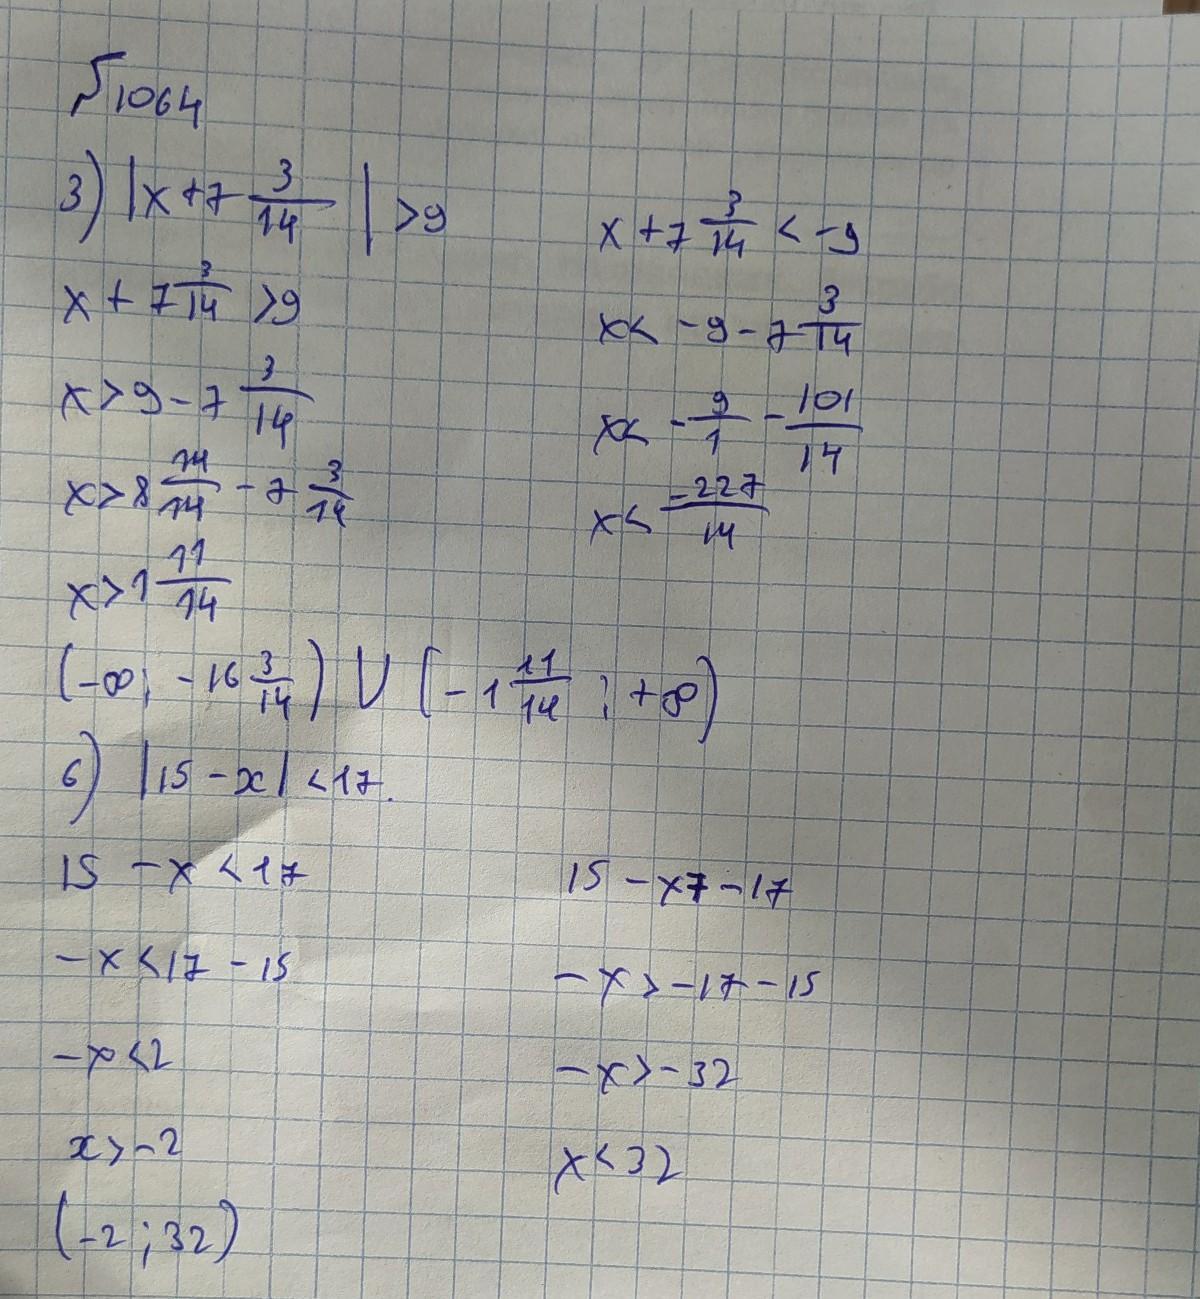 №1064
3) |x + 7 3/14| > 9
x + 7 3/14 > 9
x > 9 - 7 3/14
x > 8 14/14 - 7 3/14
x > 1 11/14
x + 7 3/14 < -9
x < -9 - 7 3/14
x < -9/1 - 101/14
x < -227/14
(-∞; -16 3/14) ∪ (-1 11/14; +∞)
6) |15 - x| < 17.
15 - x < 17
-x < 17 - 15
-x < 2
x > -2
15 - x > -17
-x > -17 - 15
-x > -32
x < 32
(-2; 32)